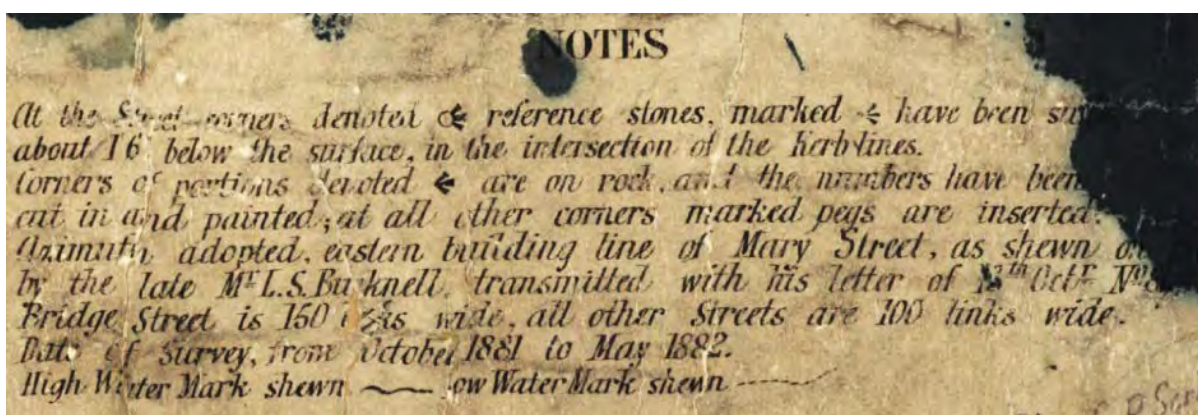 NOTES
At the Street corners denoted reference stones, marked have been
about 16 below the surface, in the intersection of the Kerb-lines.
Corners of portions denoted are on rock, and the numbers have been
cut in and painted; at all other corners marked pegs are inserted.
Azimuth adopted, eastern building line of Mary Street, as shewn
by the late Mr L.S. Bucknell, transmitted with his letter of Octr
Bridge Street is 150 links wide, all other Streets are 100 links wide.
Date of Survey, from October 1881 to May 1882.
High Water Mark shewn ow Water Mark shewn